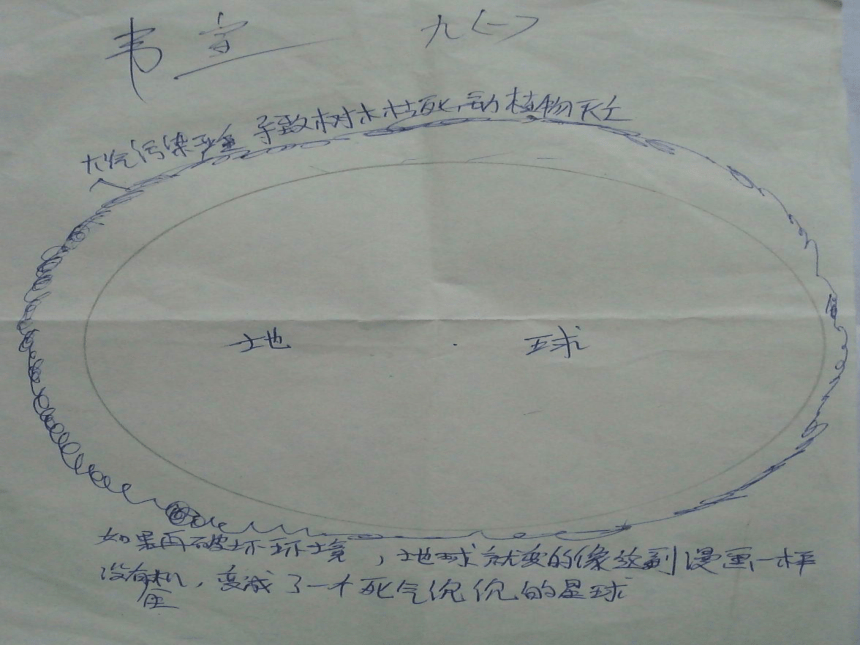 韦宁 九(一)
大气污染严重 导致树木枯死,动植物灭亡
地 球
如果再破坏环境,地球就变的像这副漫画一样
没有机座,变成了一个死气沉沉的星球